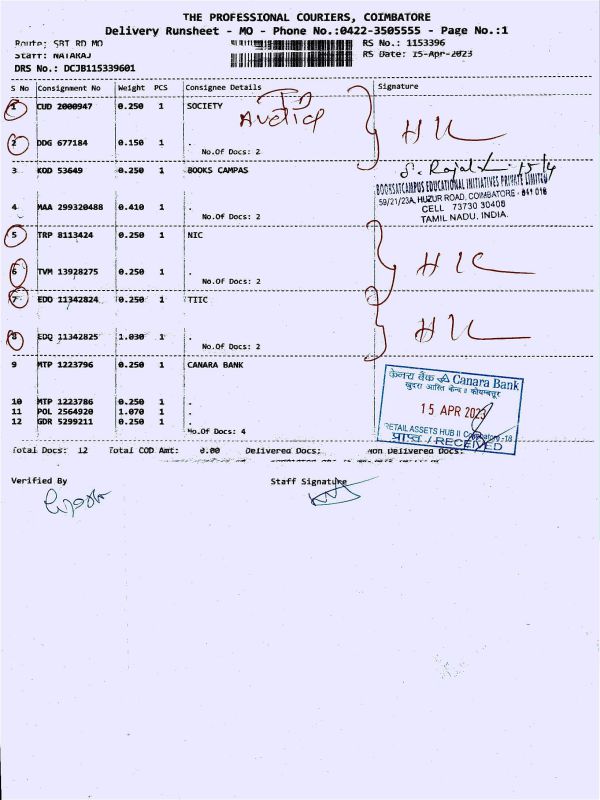 THE PROFESSIONAL COURIERS, COIMBATORE
Delivery Runsheet - MO - Phone No.:0422-3505555 - Page No.:1
Route: SBT RD MO RS No.: 1153396
Staff: NATARAJ RS Date: 15-Apr-2023
DRS No.: DCJB115339601
S No Consignment No Weight PCS Consignee Details Signature
1 CUD 2000947 0.250 1 SOCIETY
2 DDG 677184 0.150 1 .
No.Of Docs: 2
3 KOD 53649 0.250 1 BOOKS CAMPAS
15/4
BOOKSATCAMPUS EDUCATIONAL INITIATIVES PRIVATE LIMITED
59/21/23A, HUZUR ROAD, COIMBATORE - 641 018
CELL 73730 30408
TAMIL NADU, INDIA.
4 MAA 299320488 0.410 1 .
No.Of Docs: 2
5 TRP 8113424 0.250 1 NIC
6 TVM 13928275 0.250 1 .
No.Of Docs: 2
7 EDO 11342824 0.250 1 TIIC
8 EDQ 11342825 1.030 1 .
No.Of Docs: 2
9 MTP 1223796 0.250 1 CANARA BANK
केनरा बैंक Canara Bank
खुदरा आस्ति केन्द्र II कोयम्बत्तूर
15 APR 2023
RETAIL ASSETS HUB II Coimbatore-18
प्राप्त / RECEIVED
10 MTP 1223786 0.250 1 .
11 POL 2564920 1.070 1 .
12 GDR 5299211 0.250 1 .
No.Of Docs: 4
Total Docs: 12 Total COD Amt: 0.00 Delivered Docs: Non Delivered Docs:
Verified By Staff Signature